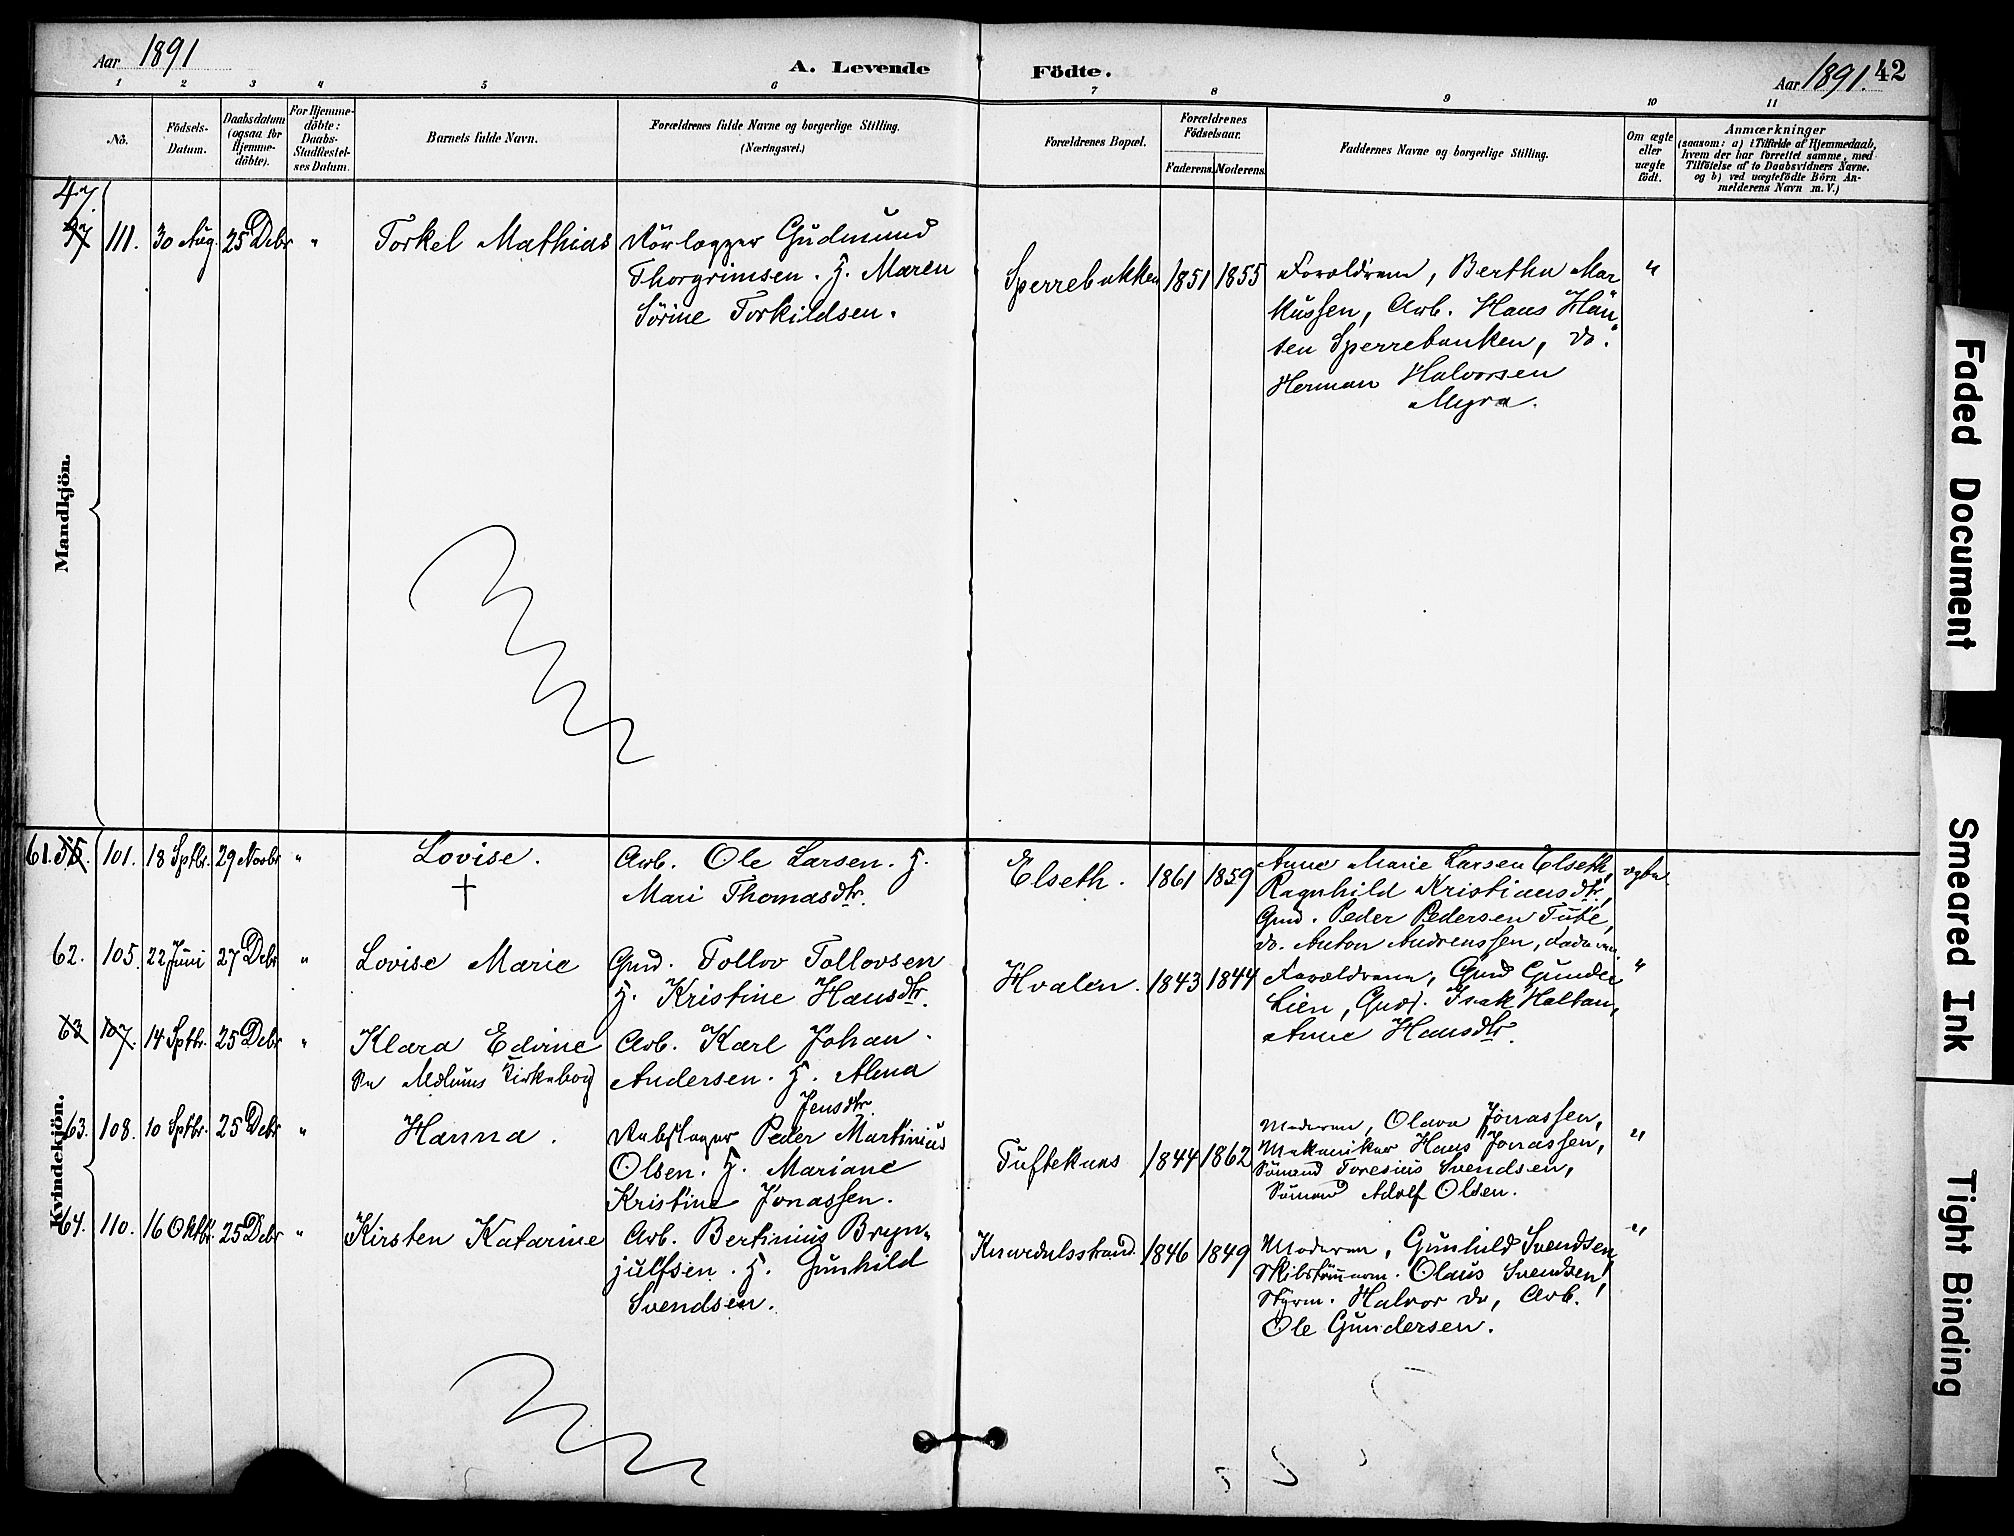 Aar 1891
A. Levende
Födte.
Aar 1891. 42
1 2 3 4 5 6 7 8 9 10 11
No.
Födsels-
Datum.
Daabsdatum
(ogsaa for
Hjemme-
döbte).
For Hjemme-
döbte:
Daabs-
Stadfæstel-
ses Datum.
Barnets fulde Navn.
Forældrenes fulde Navne og borgerlige Stilling.
(Næringsvei.)
Forældrenes Bopæl.
Forældrenes
Födselsaar.
Faderens. Moderens.
Faddernes Navne og borgerlige Stilling.
Om ægte
eller
uægte
födt.
Anmærkninger
(saasom: a) i Tilfælde af Hjemmedaab,
hvem der har forrettet samme, med
Tilföielse af to Daabsvidners Navne,
og b) ved uægtefödte Börn An-
melderens Navn m. V.)
Mandkjön.
47.
111. 30 Aug. 25 Debr " Torkel Mathias
Gudmund
Thorgrimsen. H. Maren
Sörine Torkildsen.
Sperrebakken 1851 1855
Forældrene, Bertha Mar
kussen, Arb. Hans Han
sen Sperrebakken, do.
Herman Halvorsen
Myra.
"
Kvindekjön.
61. 55. 101. 18 Sptbr. 29 Novbr " Lovise.
†
Arb. Ole Larsen. H.
Mari Thomasdtr.
Elseth. 1861 1859
Anne Marie Larsen Elseth,
Ragnhild Kristiansdtr,
Gmd. Peder Pedersen Tufte,
do. Anton Andreassen,
ægte.
62. 105. 22 Juni 27 Debr " Lovise Marie
Gmd. Tollov Tollovsen
H. Kristine Hansdtr.
Hvalen. 1843 1844
Forældrene, Gmd Gunder
Lien, Gmd. Isak Haltan,
Anne Hansdtr.
"
63 107. 14 Sptbr. 25 Debr " Klara Edvine
Se Mælums Kirkebog
Arb. Karl Johan
Andersen. H. Alena
Jensdtr.
63. 108. 10 Sptbr. 25 Debr " Hanna.
Peder Martinius
Olsen. H. Mariane
Kristine Jonassen.
Tuftekaas 1844 1862
Moderen, Olava Jonassen,
Mekaniker Hans Jonassen,
Sömand Toresius Svendsen,
Sömand Adolf Olsen.
"
64. 110. 16 Oktbr. 25 Debr " Kirsten Katarine
Arb. Bertinius Bryn-
julfsen. H. Gunhild
Svendsen.
Knardalsstrand. 1846 1849
Moderen, Gunhild Svendsen,
Skibstömmerm. Olaus Svendsen,
Styrm. Halvor do, Arb.
Ole Gundersen.
"
Faded Document
Smeared Ink
Tight Binding